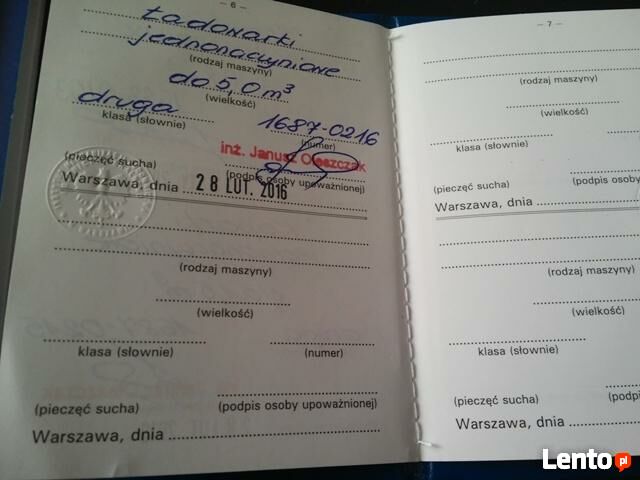 – 6 –
Ładowarki
jednonaczyniowe
(rodzaj maszyny)
do 5,0 m³
(wielkość)
druga
klasa (słownie)
1687-0216
(numer)
inż. Janusz Oleszczak
(pieczęć sucha)
(podpis osoby upoważnionej)
Warszawa, dnia 28 LUT. 2016
(rodzaj maszyny)
(wielkość)
klasa (słownie)
(numer)
(pieczęć sucha)
(podpis osoby upoważnionej)
Warszawa, dnia
– 7 –
(rodzaj maszyny)
(wielkość)
klasa (słownie)
(pieczęć sucha)
(podpis osoby
Warszawa, dnia
(rodzaj maszyny)
(wielkość)
klasa (słownie)
(pieczęć sucha)
(podpis osoby
Warszawa, dnia
Lento.pl